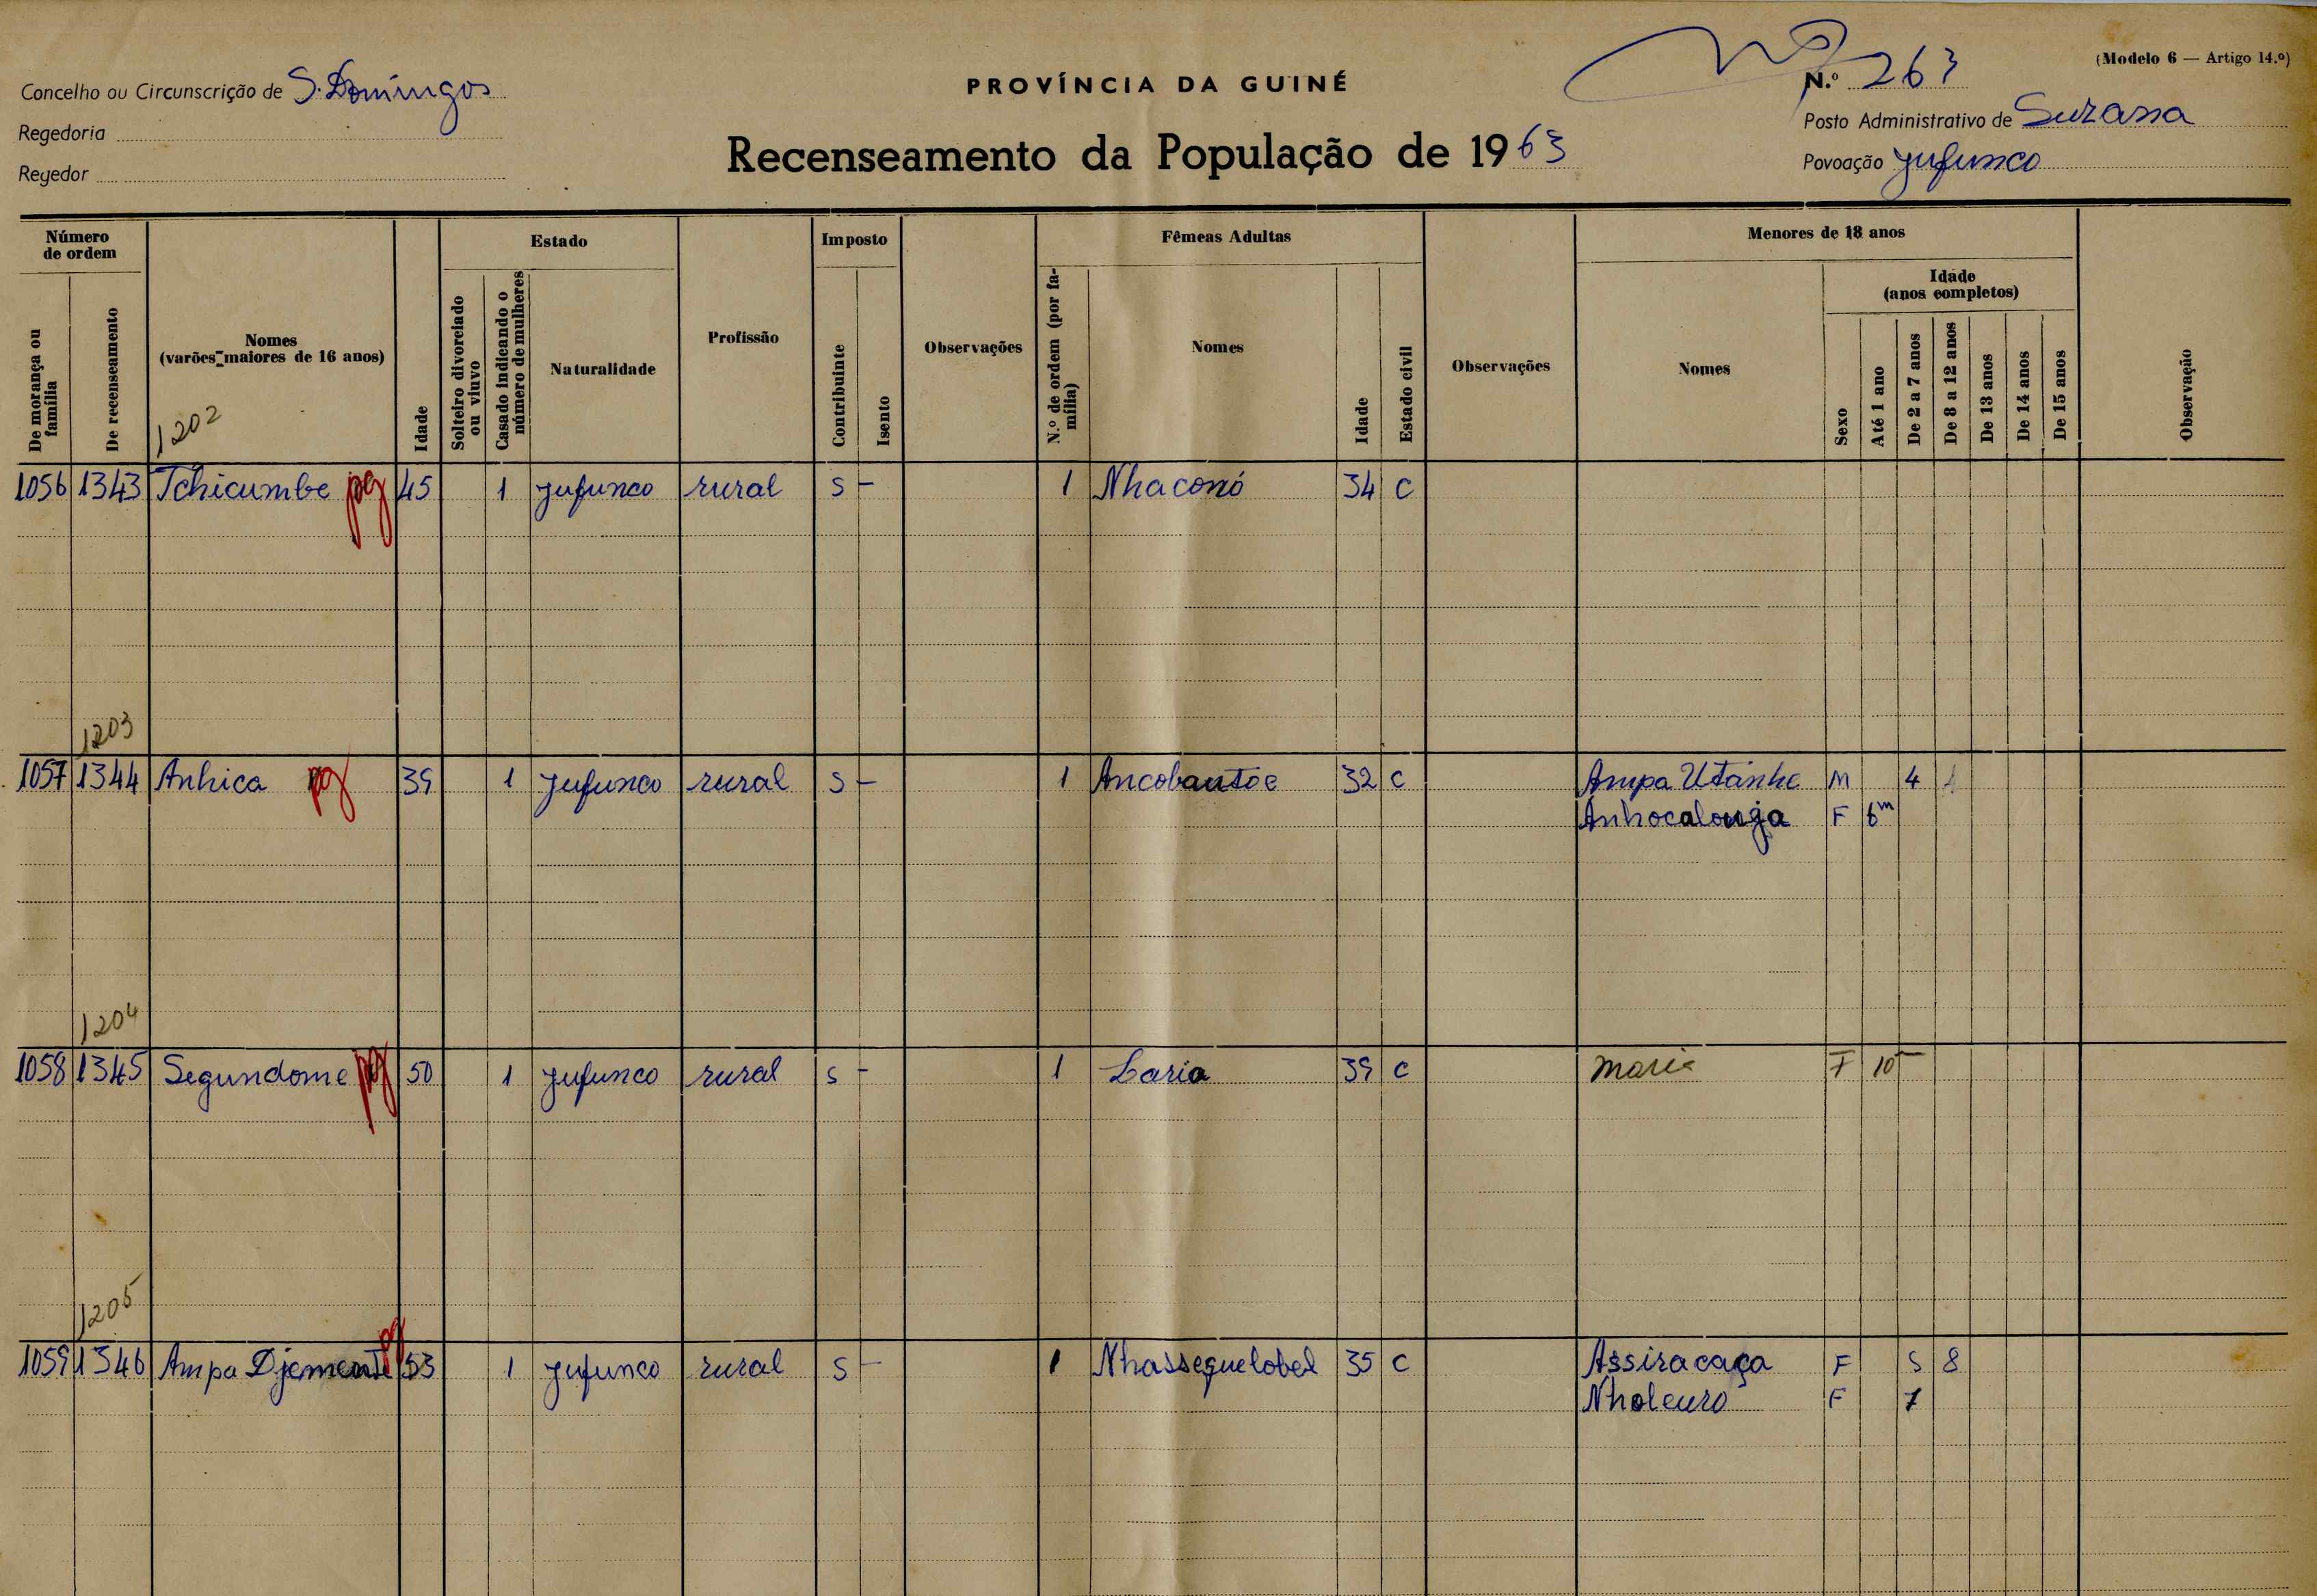 (Modelo 6 — Artigo 14.º)
Concelho ou Circunscrição de S. Domingos
PROVÍNCIA DA GUINÉ
N.º 263
Regedoria
Posto Administrativo de Suzana
Regedor
Recenseamento da População de 1963
Povoação Jufunco
Número de ordem
De morança ou família
De recenseamento
Nomes
(varões maiores de 16 anos)
Idade
Estado
Solteiro divorciado ou viuvo
Casado indicando o número de mulheres
Naturalidade
Profissão
Imposto
Contribuinte
Isento
Observações
Fêmeas Adultas
N.º de ordem (por família)
Nomes
Idade
Estado civil
Observações
Menores de 18 anos
Nomes
Sexo
Idade
(anos completos)
Até 1 ano
De 2 a 7 anos
De 8 a 12 anos
De 13 anos
De 14 anos
De 15 anos
Observação
1202
1056 1343 Tchicumbe pg 45 1 Jufunco rural s — 1 Nhaconó 34 C
1203
1057 1344 Anhica pg 39 1 Jufunco rural s — 1 Ancobautoe 32 C Ampa Utanhe M 4
Anhocalouja F 6m
1204
1058 1345 Segundome pg 50 1 Jufunco rural s — 1 Laria 39 C Maria F 10
1205
1059 1346 Ampa Djemente pg 53 1 Jufunco rural s — 1 Nhassequelobel 35 C Assiracaça F 5 8
Nholeuro F 7